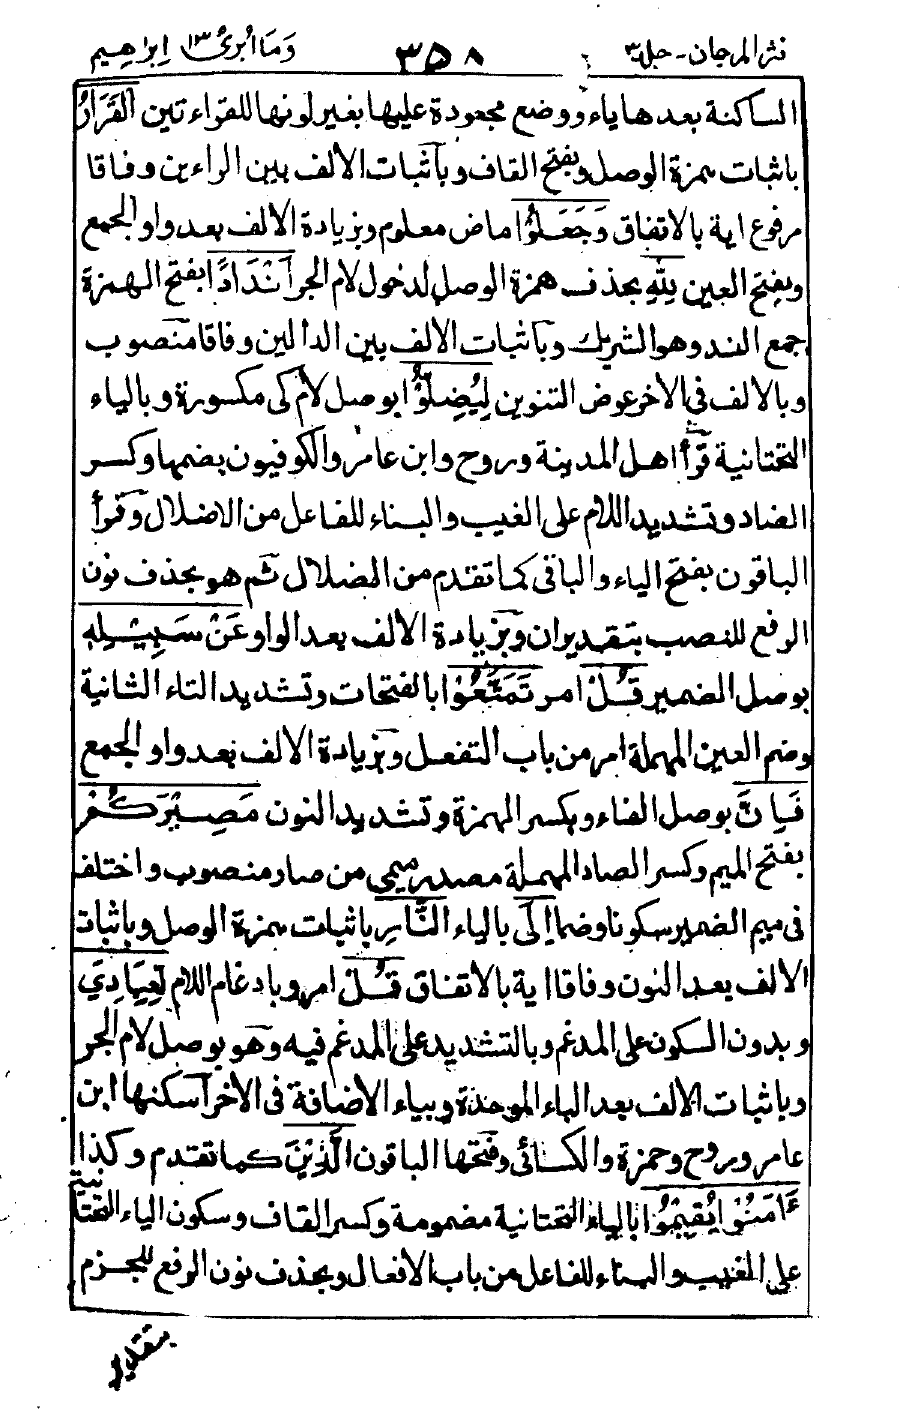 نثر المرجان - جلد ٣ ٣٥٨ وَمَا أُبَرِّئُ ١٣ إبراهيم
الساكنة بعدها ياء ووضع مجعودة عليها بغير لونها للقراءتين القَرَارُ
باثبات همزة الوصل وبفتح القاف وبآثبات الالف بين الراءين وفاقا
مرفوع اية بالاتفاق وَجَعَلُوْا ماض معلوم وبزيادة الالف بعد واو الجمع
وبفتح العين لِلّٰهِ بحذف همزة الوصل لدخول لام الجر اَنْدَادًا بفتح الهمزة
جمع الند وهو الشريك وبآثبات الالف بين الدالين وفاقا منصوب
وبالالف في الاخر عوض التنوين لِيُضِلُّوْا بوصل لام كى مكسورة وبالياء
التحتانية قرأ اهل المدينة وروح وابن عامر والكوفيون بضمها وكسر
الضاد وتشديد اللام على الغيب والبناء للفاعل من الاضلال وقرأ
الباقون بفتح الياء والباقى كما تقدم من الضلال ثم هو بحذف نون
الرفع للنصب بتقدير ان وبزيادة الالف بعد الواو عَنْ سَبِيْلِهٖ
بوصل الضمير قُلْ امر تَمَتَّعُوْا بالفتحات وتشديد التاء الثانية
وضم العين المهملة امر من باب التفعل وبزيادة الالف بعد واو الجمع
فَاِنَّ بوصل الفاء وبكسر الهمزة وتشديد النون مَصِيْرَكُمْ
بفتح الميم وكسر الصاد المهملة مصدر ميمى من صار منصوب واختلف
فى ميم الضمير سكونا وضما اِلَى بالياء النَّارِ باثبات همزة الوصل وباثبات
الالف بعد النون وفاقا اية بالاتفاق قُلْ امر وبادغام اللام لِعِبَادِيَ
وبدون السكون على المدغم وبالتشديد على المدغم فيه وهو بوصل لام الجر
وباثبات الالف بعد الباء الموحدة وبياء الاضافة فى الاخر اسكنها ابن
عامر وروح وحمزة والكسائى وفتحها الباقون الَّذِيْنَ كما تقدم وكذا
ءَامَنُوْا يُقِيْمُوْا بالياء التحتانية مضمومة وكسر القاف وسكون الياء التحتانية
على الغيب والبناء للفاعل من باب الافعال وبحذف نون الرفع للجزم
بتقدير